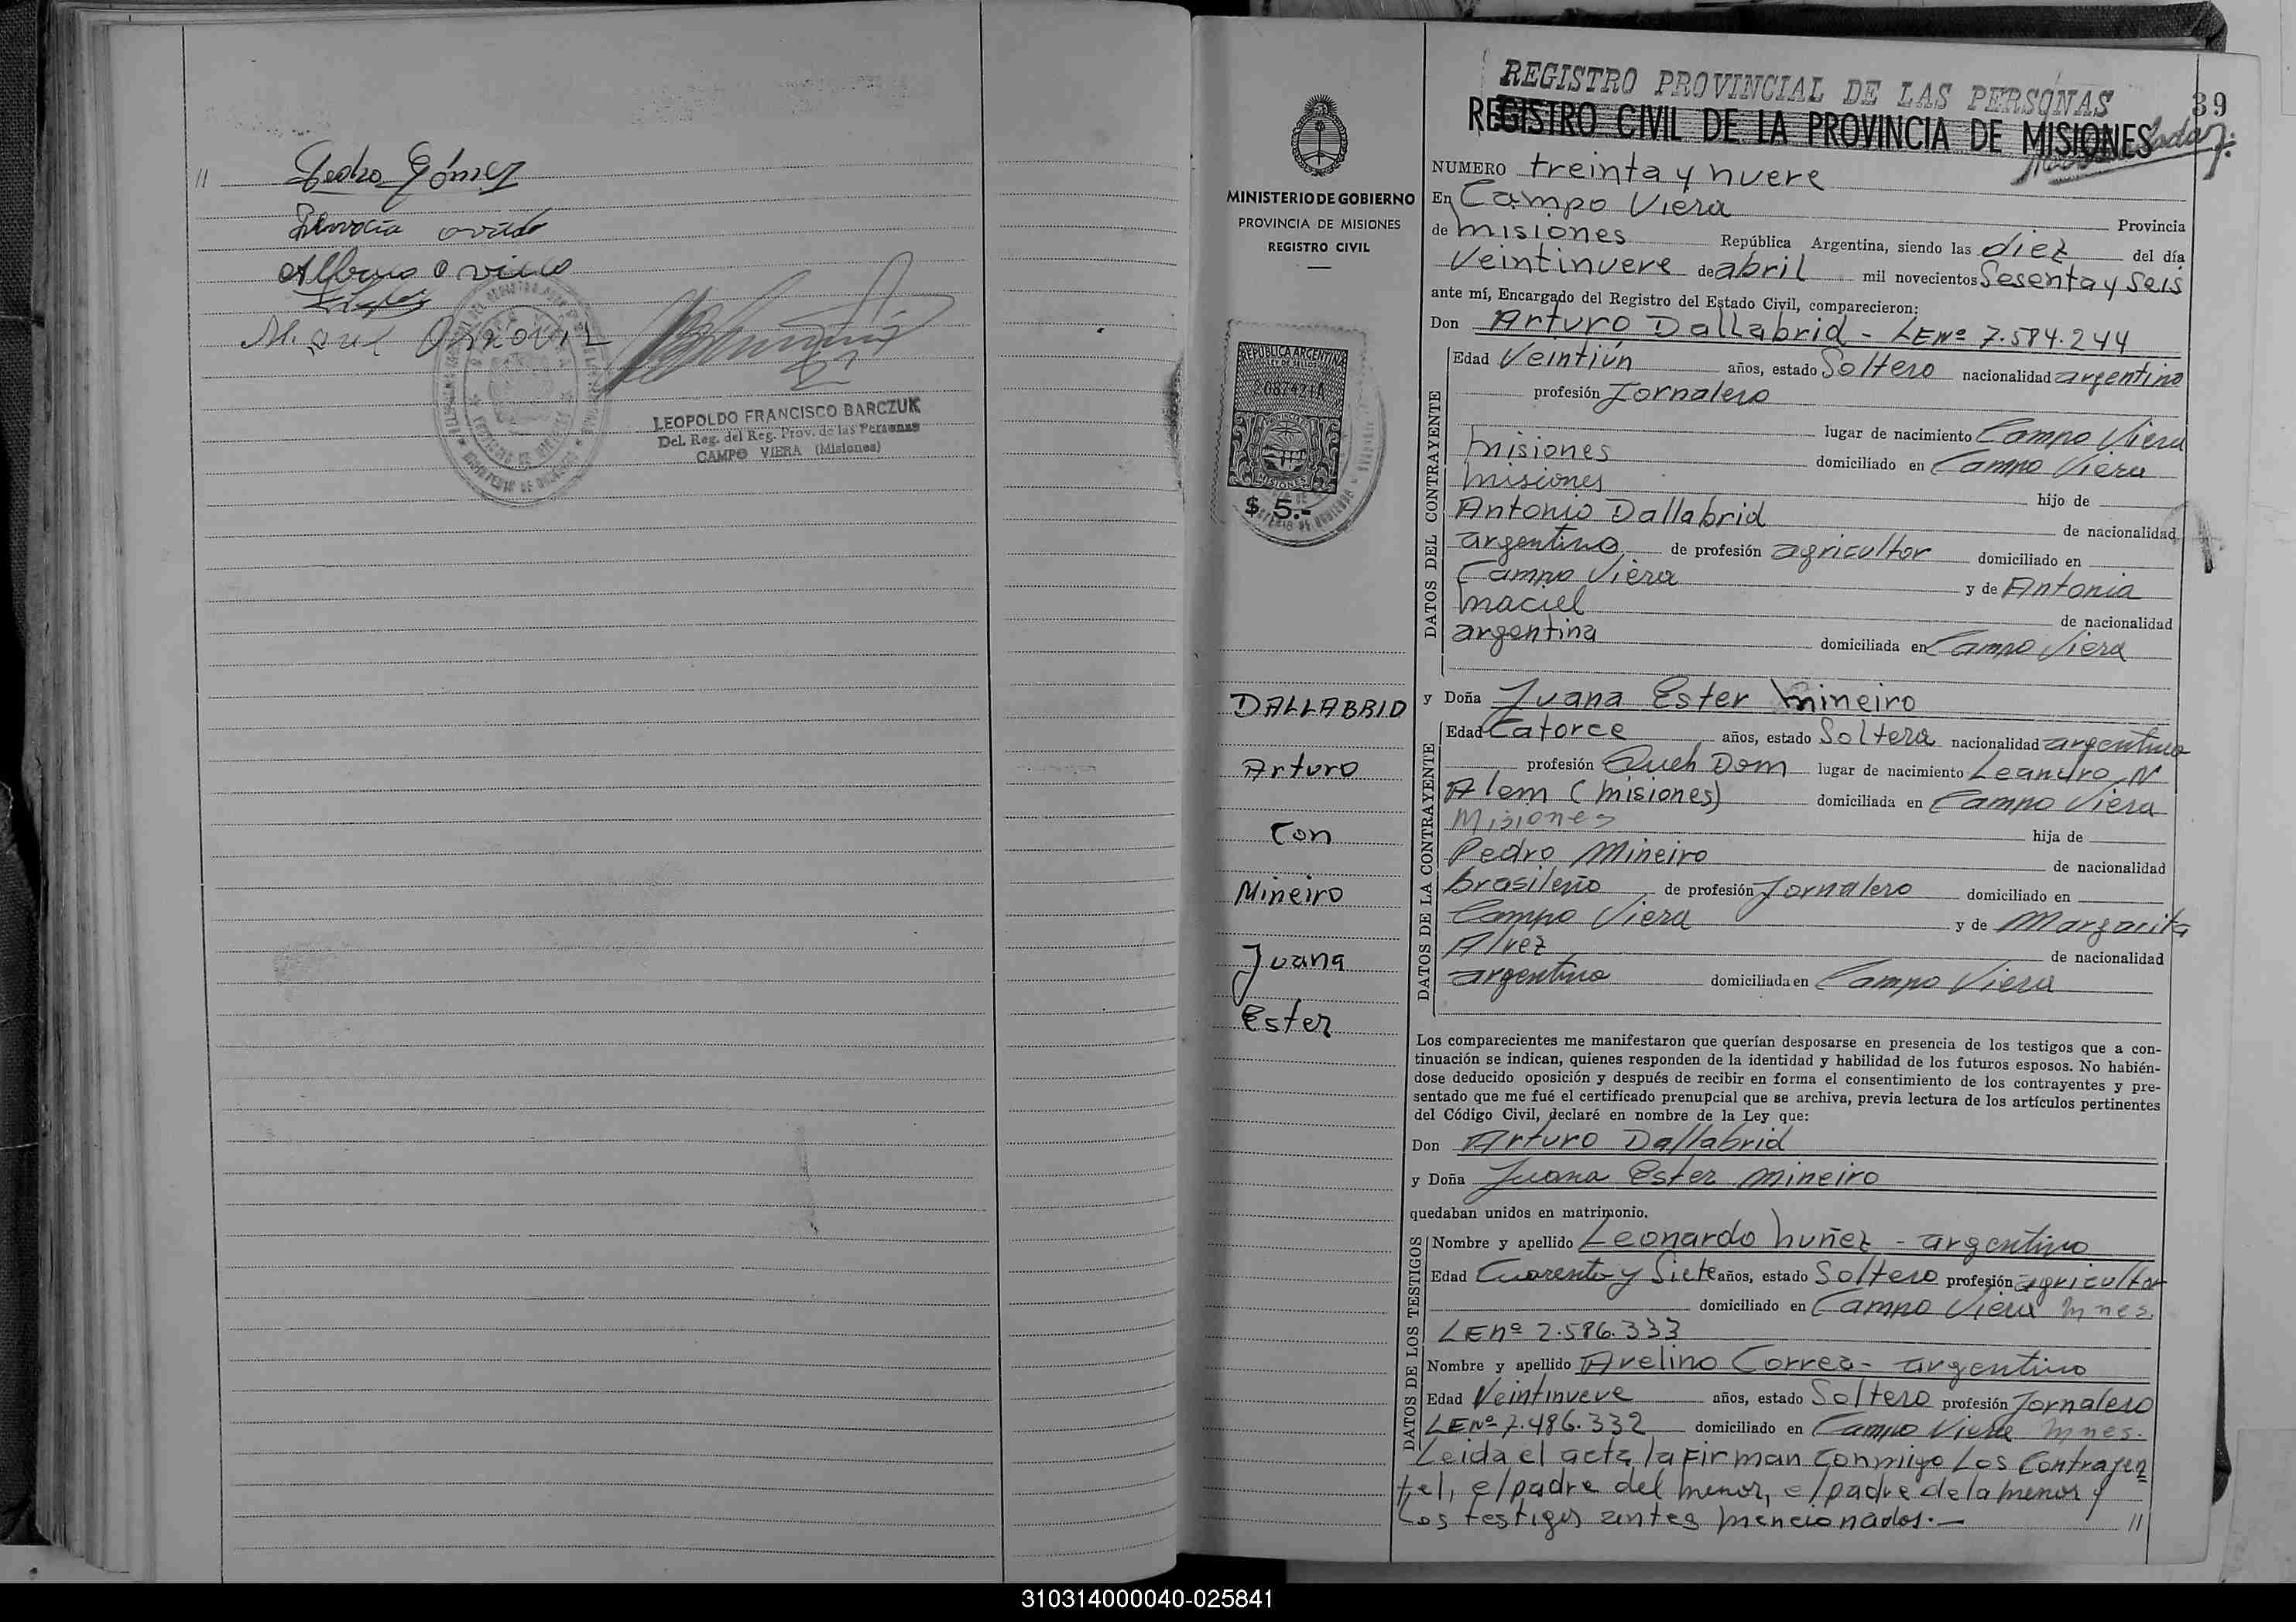 // Pedro Gómez
Oviedo
Alberto Oviedo
LEOPOLDO FRANCISCO BARCZUK
Del. Reg. del Reg. Prov. de las Personas
CAMPO VIERA (Misiones)
MINISTERIO DE GOBIERNO
PROVINCIA DE MISIONES
REGISTRO CIVIL
REPUBLICA ARGENTINA
LEY DE SELLOS
MISIONES
$ 5.-
DALLABRID
Arturo
Con
Mineiro
Juana
Ester
REGISTRO PROVINCIAL DE LAS PERSONAS
39
REGISTRO CIVIL DE LA PROVINCIA DE MISIONES
NUMERO treinta y nueve
En Campo Viera Provincia
de misiones República Argentina, siendo las diez del día
Veintinueve de abril mil novecientos Sesenta y Seis
ante mí, Encargado del Registro del Estado Civil, comparecieron:
Don Arturo Dallabrid - LE Nº 7.584.244
DATOS DEL CONTRAYENTE
Edad Veintiún años, estado Soltero nacionalidad argentino
profesión Jornalero
lugar de nacimiento Campo Viera
misiones domiciliado en Campo Viera
misiones hijo de
Antonio Dallabrid de nacionalidad
argentino de profesión agricultor domiciliado en
Campo Viera y de Antonia
maciel de nacionalidad
argentina domiciliada en Campo Viera
y Doña Juana Ester Mineiro
DATOS DE LA CONTRAYENTE
Edad Catorce años, estado Soltera nacionalidad argentina
profesión Queh Dom lugar de nacimiento Leandro N
Alem (misiones) domiciliada en Campo Viera
Misiones hija de
Pedro Mineiro de nacionalidad
brasileño de profesión Jornalero domiciliado en
Campo Viera y de Margarita
Alvez de nacionalidad
argentina domiciliada en Campo Viera
Los comparecientes me manifestaron que querían desposarse en presencia de los testigos que a con-
tinuación se indican, quienes responden de la identidad y habilidad de los futuros esposos. No habién-
dose deducido oposición y después de recibir en forma el consentimiento de los contrayentes y pre-
sentado que me fué el certificado prenupcial que se archiva, previa lectura de los artículos pertinentes
del Código Civil, declaré en nombre de la Ley que:
Don Arturo Dallabrid
y Doña Juana Ester Mineiro
quedaban unidos en matrimonio.
DATOS DE LOS TESTIGOS
Nombre y apellido Leonardo Nuñez - argentino
Edad Cuarenta y Siete años, estado Soltero profesión agricultor
domiciliado en Campo Viera Mnes.
LE Nº 2.586.333
Nombre y apellido Avelino Correa - argentino
Edad Veintinueve años, estado Soltero profesión Jornalero
LE Nº 7.486.332 domiciliado en Campo Viera Mnes.
Leida el acta la firman conmigo Los Contrayen
tes, el padre del menor, el padre de la menor y
Los testigos antes mencionados.- //
310314000040-025841